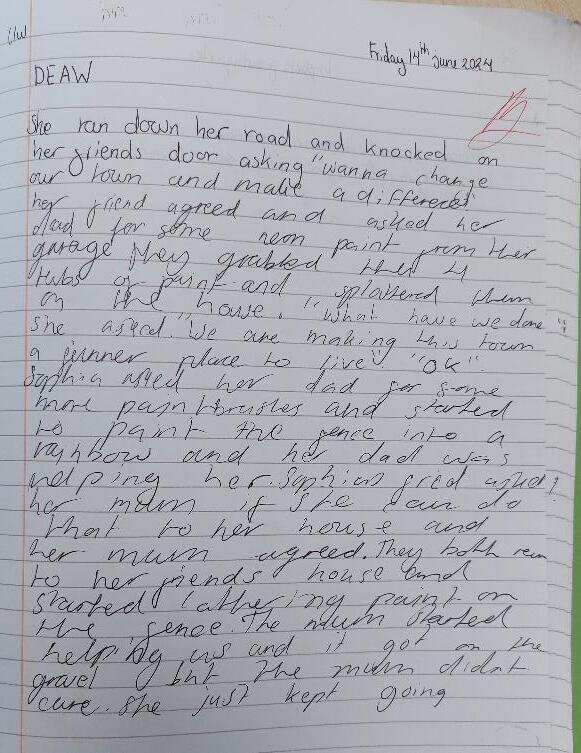 C/W
Friday 14th june 2024
DEAW
She ran down her road and knocked on
her friends door asking "wanna change
our town and make a differece"
her friend agreed and asked her
dad for some neon paint from ther
garage they grabbed ther 4
tubs of paint and splattered them
on the house. "What have we done"
she asked. "We are making this town
a funner place to live". "OK".
Sophia asked her dad for some
more paintbrushes and started
to paint the fence into a
rainbow and her dad was
helping her. Sophias fried asked
her mum if she can do
that to her house and
her mum agreed. They both ran
to her friends house and
started lathering paint on
the fence. The mum started
helping us and it got on the
gravel but the mum didnt
care. She just kept going